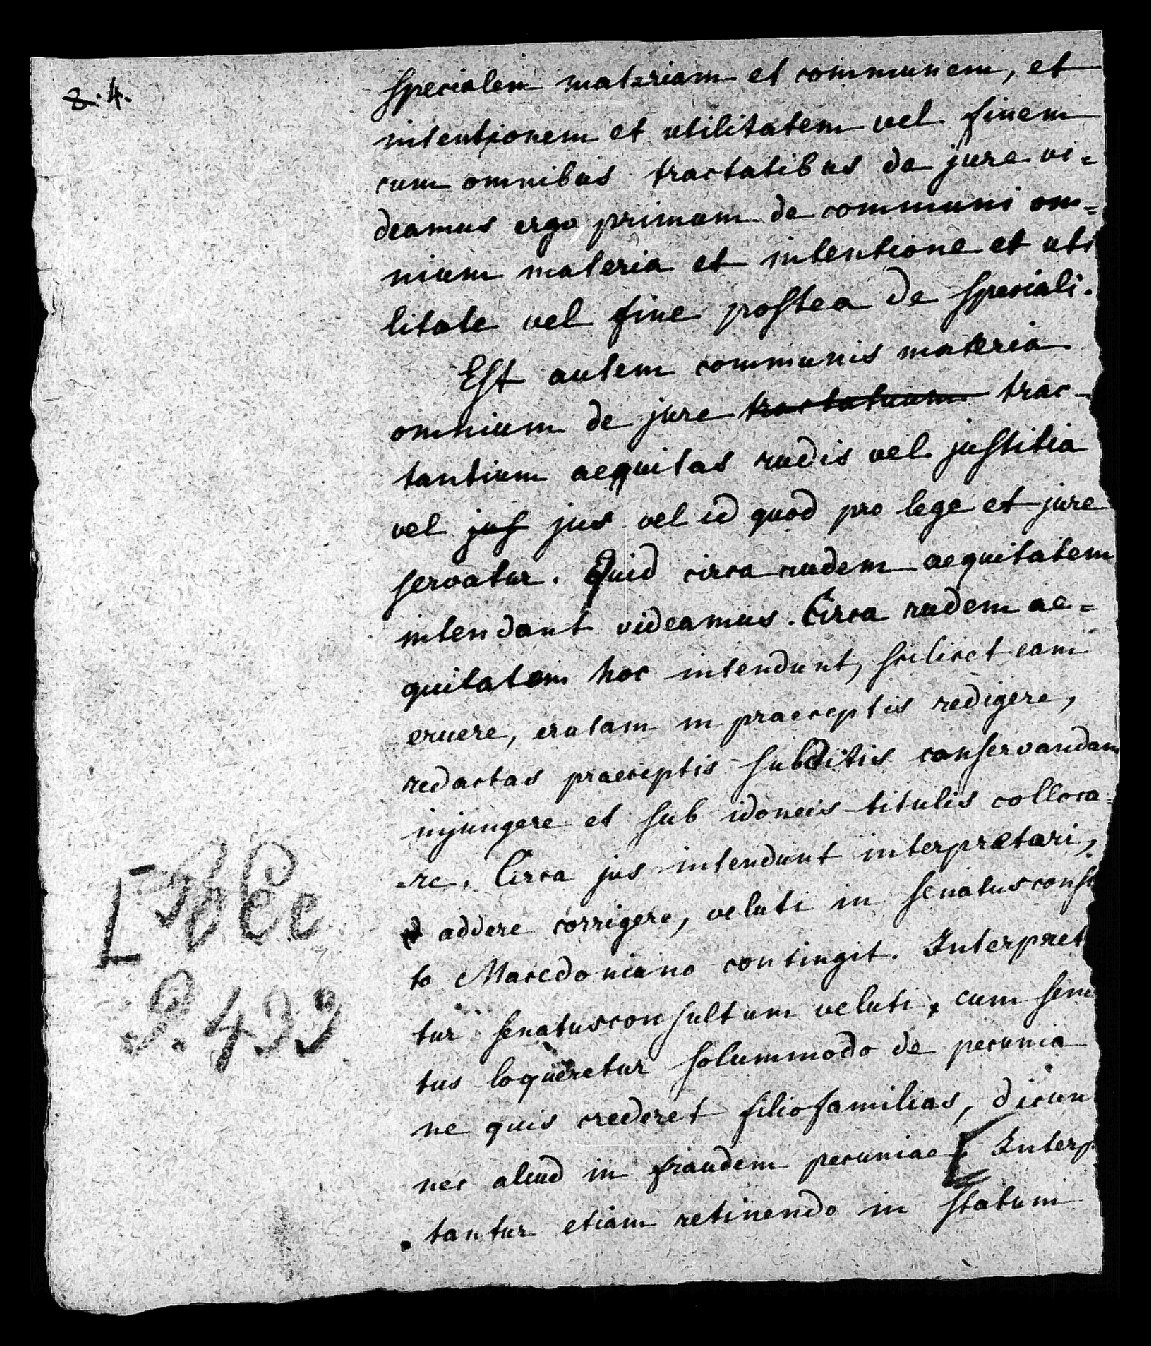 8. 4.
specialem materiam et communem, et
intentionem et utilitatem vel finem
cum omnibus tractatibus de jure vi=
deamus ergo primum de communi om=
nium materia et intentione et uti
litate vel fine postea de speciali.
Est autem communis materia
omnium de jure tractatuum trac-
tantium aequitas rudis vel justitia
vel jus jus vel id quod pro lege et jure
servatur. Quid circa rudem aequitatem
intendant videamus. Circa rudem ae=
quitatem hoc intendunt, scilicet eam
eruere, erutam in praeceptis redigere,
redactas praeceptis subditis conservandam
injungere et sub idoneis titulis colloca-
re. Circa jus intendunt interpretari,
addere corrigere, veluti in senatusconsul
to Macedoniano contingit. Interpret
tur senatusconsultum veluti, cum sena
tus loqueretur solummodo de pecunia
ne quis crederet filiofamilias, dicun
nec aliud in fraudem pecuniae [ Interp
tantur etiam retinendo in statum
p. 433